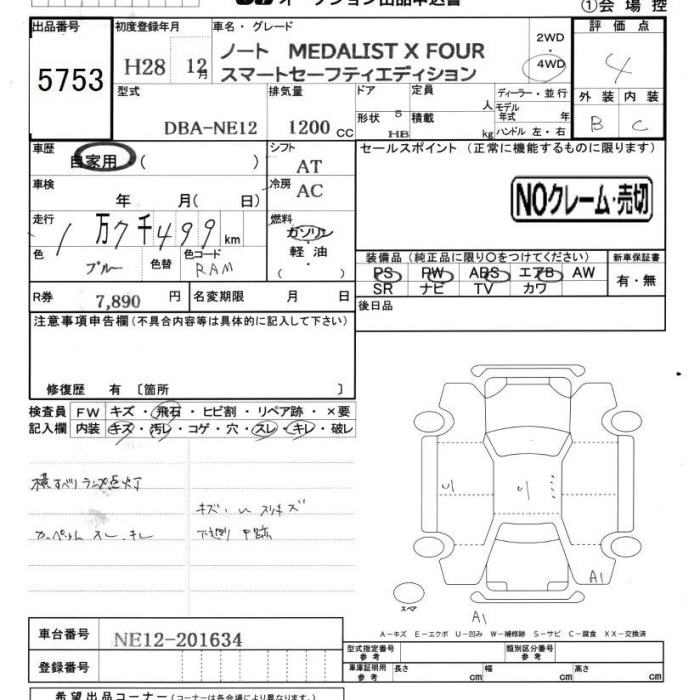 オークション出品申込書
①会場控
出品番号
5753
初度登録年月
H28 12月
車名・グレード
ノート MEDALIST X FOUR
スマートセーフティエディション
2WD
・
4WD
評価点
4
外装 内装
B C
型式
DBA-NE12
排気量
1200 CC
ドア
形状 5
HB
定員
人
積載
kg
ディーラー・並行
モデル
年式 年
ハンドル 左・右
車歴
自家用 ( )
シフト
AT
車検
年 月( 日)
冷房
AC
走行
1万7千499km
燃料
ガソリン
・
軽油
・
( )
色
ブルー
色替
色コード
RAM
R券
7,890 円
名変期限 月 日
セールスポイント (正常に機能するものに限ります)
NOクレーム・売切
装備品 (純正品に限り〇をつけてください)
PS PW ABS エアB AW
SR ナビ TV カワ
新車保証書
有・無
後日品
注意事項申告欄 (不具合内容等は具体的に記入して下さい)
修復歴 有 〔箇所 〕
検査員 FW キズ・飛石・ヒビ割・リペア跡・×要
記入欄 内装 キズ・汚レ・コゲ・穴・スレ・キレ・破レ
横すべりランプ点灯
カーペットスレ、キレ
キズ、凹、スリキズ
U
U
A1
A1
スペア
A-キズ E-エクボ U-凹み W-補修跡 S-サビ C-腐食 XX-交換済
車台番号
NE12-201634
登録番号
型式指定番号
参考
類別区分番号
参考
車庫証明用
参考
長さ cm
幅 cm
高さ cm
希望出品コーナー (コーナーは各会場により異なります)